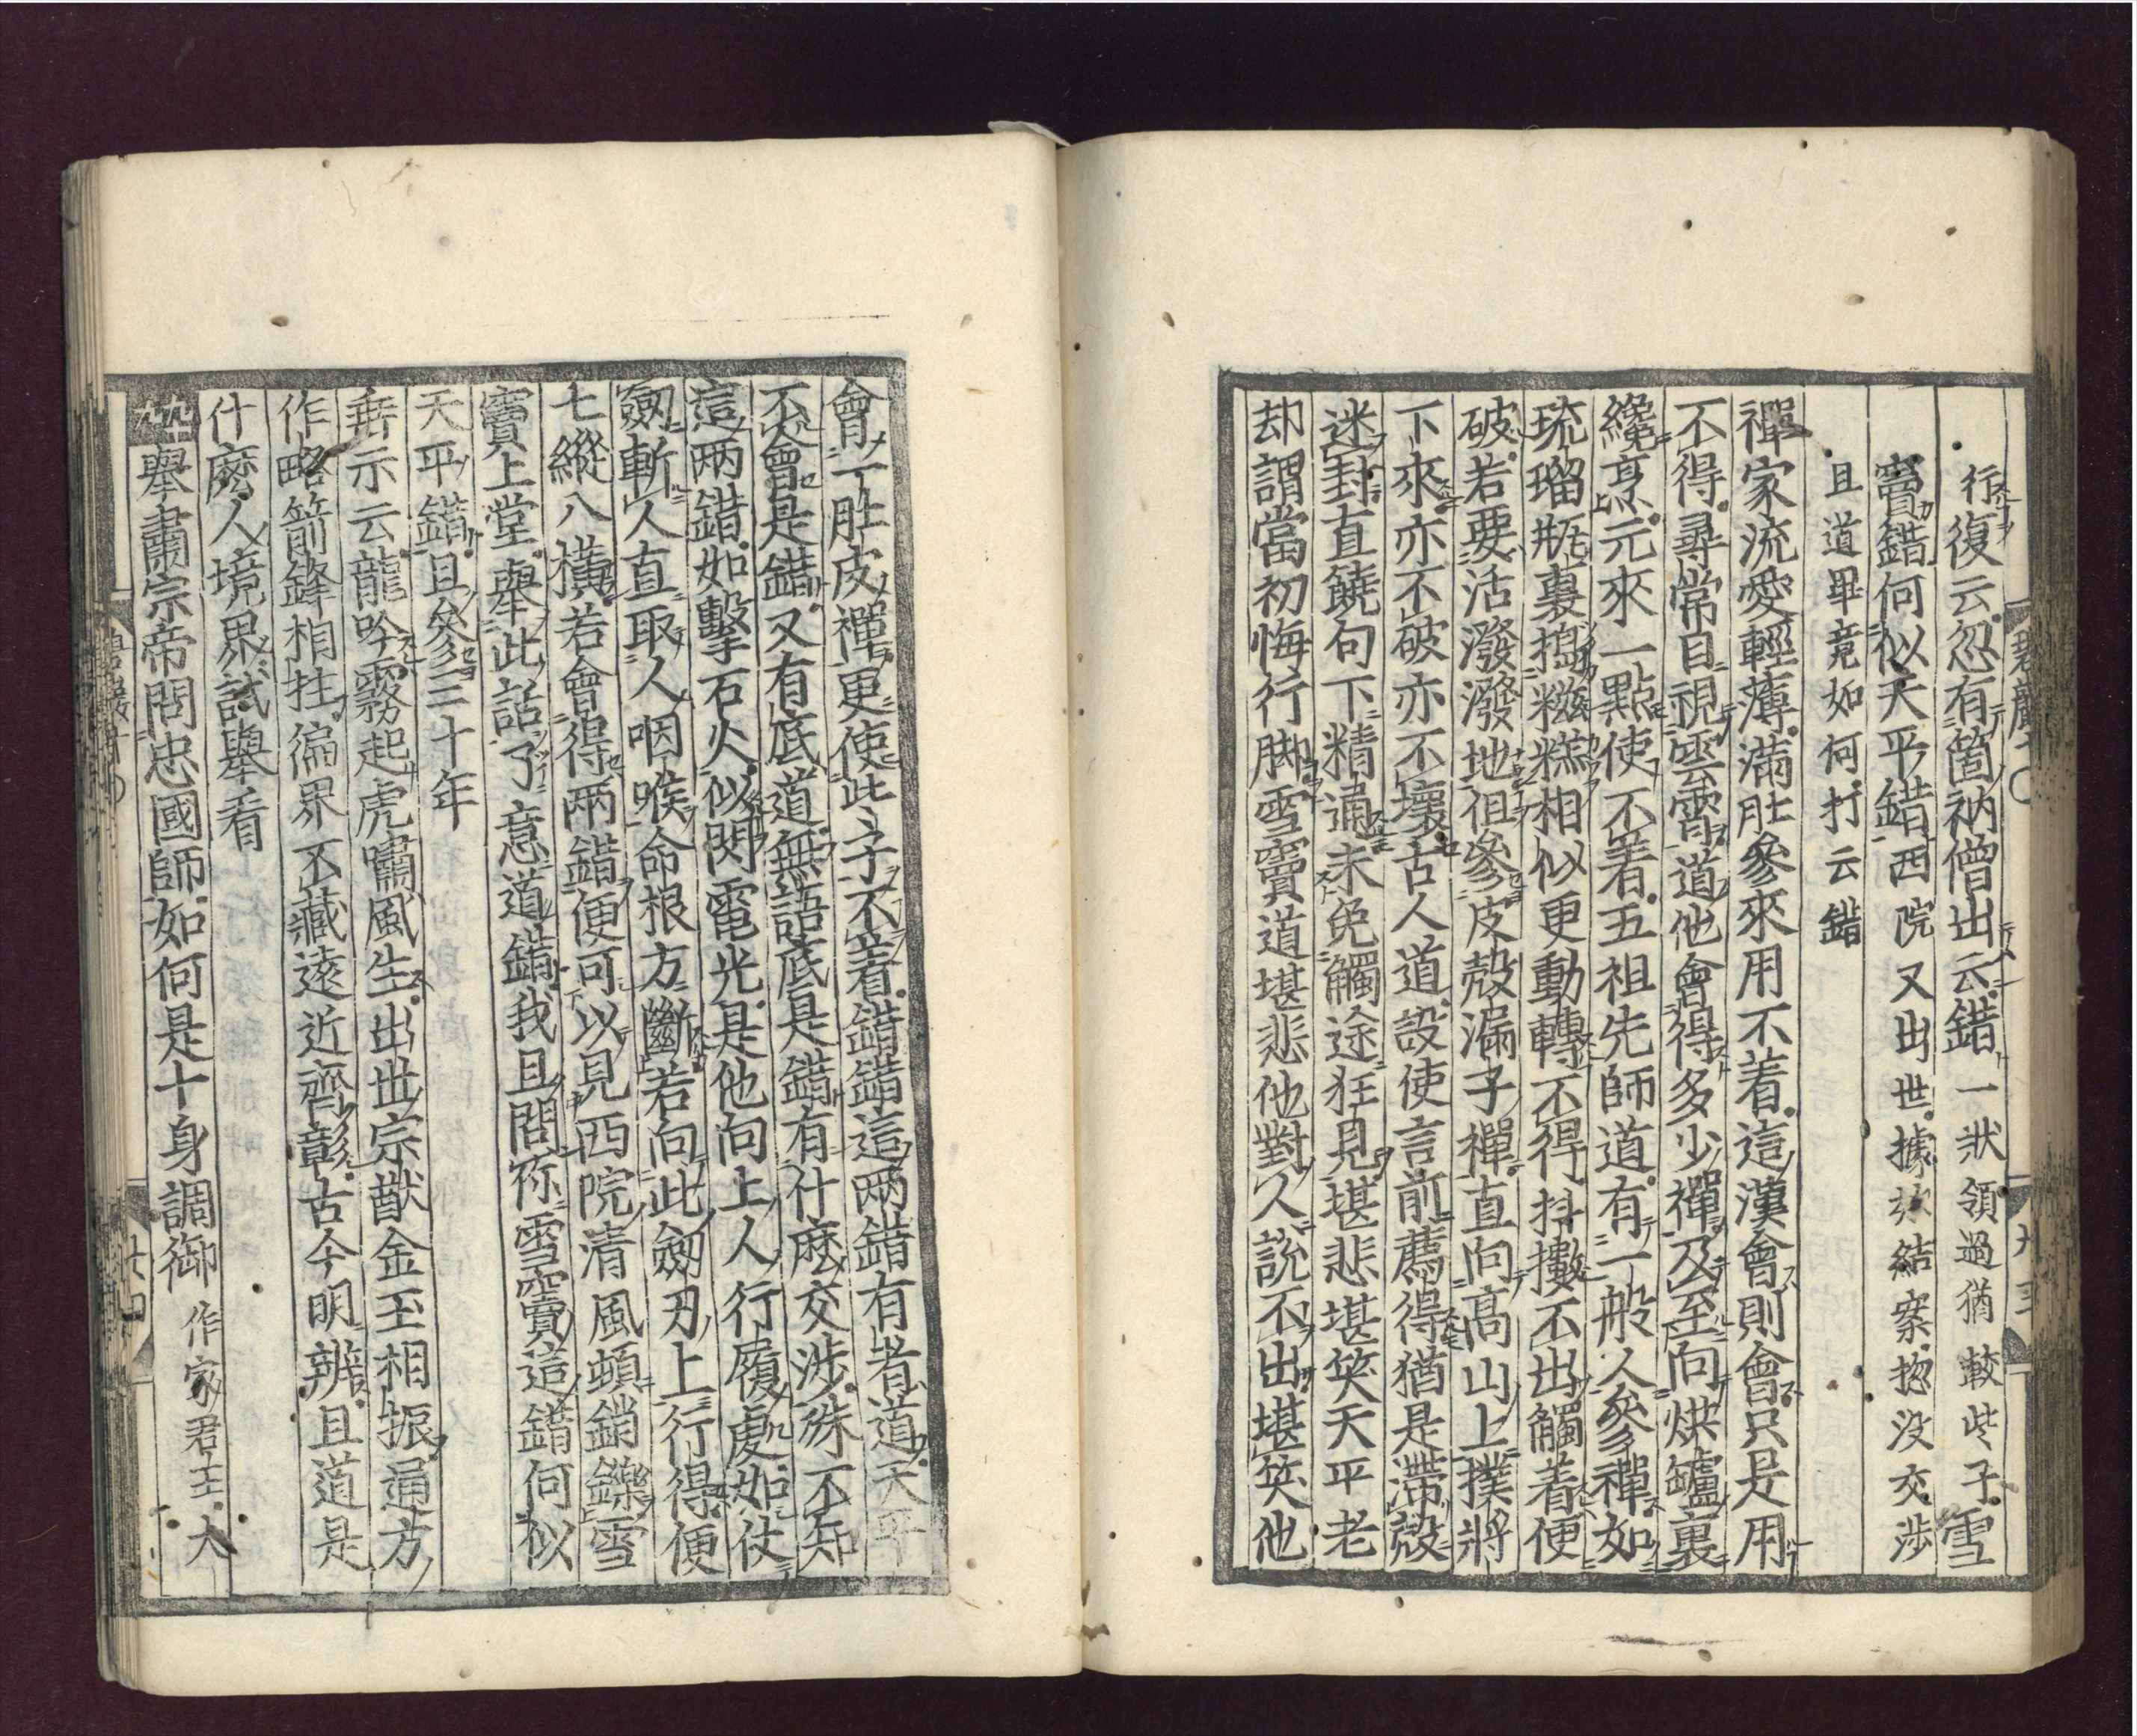 行復云忽有箇衲僧出云錯一狀領過猶較些子雪
竇錯何似天平錯西院又出世據款結案揔没交渉
且道畢竟如何打云錯
禪家流愛輕薄滿肚參來用不着這漢會則會只是用
不得尋常目視雲霄道他會得多少禪及至向烘爐裏
纔烹元來一點使不着五祖先師道有一般人參禪如
琉璃瓶裏搗糍糕相似更動轉不得抖擻不出觸着便
破若要活潑潑地但參皮殼漏子禪直向高山上撲將
下來亦不破亦不壞古人道設使言前薦得猶是滯殼
迷封直饒句下精通未免觸途狂見堪悲堪笑天平老
却謂當初悔行脚雪竇道堪悲他對人說不出堪笑他
會一肚皮禪更使些子不着錯錯這兩錯有者道天平
不會是錯又有底道無語底是錯有什麽交涉殊不知
這兩錯如擊石火似閃電光是他向上人行履處如仗
劒斬人直取人咽喉命根方斷若向此劒刃上行得便
七縱八橫若會得兩錯便可以見西院清風頓銷鑠雪
竇上堂舉此話了意道錯我且問你雪竇這錯何似
天平錯且參三十年
垂示云龍吟霧起虎嘯風生出世宗猷金玉相振通方
作略箭鋒相拄徧界不藏遠近齊彰古今明辨且道是
什麽人境界試舉看
九九舉肅宗帝問忠國師如何是十身調御作家君王大
碧巖十
九三